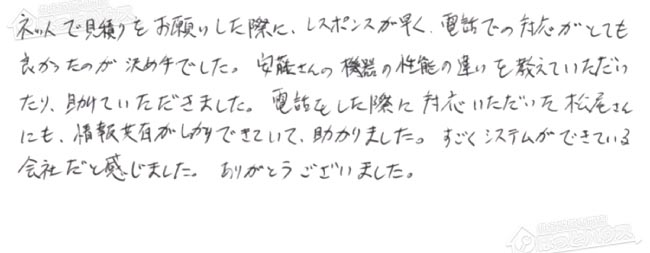 ネットで見積りをお願いした際に、レスポンスが早く、電話での対応がとても
良かったのが決め手でした。安藤さんの機器の性能の違いを教えていただい
たり、助けていただきました。電話をした際に対応いただいた松尾さん
にも、情報共有がしっかりできていて、助かりました。すごくシステムができている
会社だと感じました。ありがとうございました。